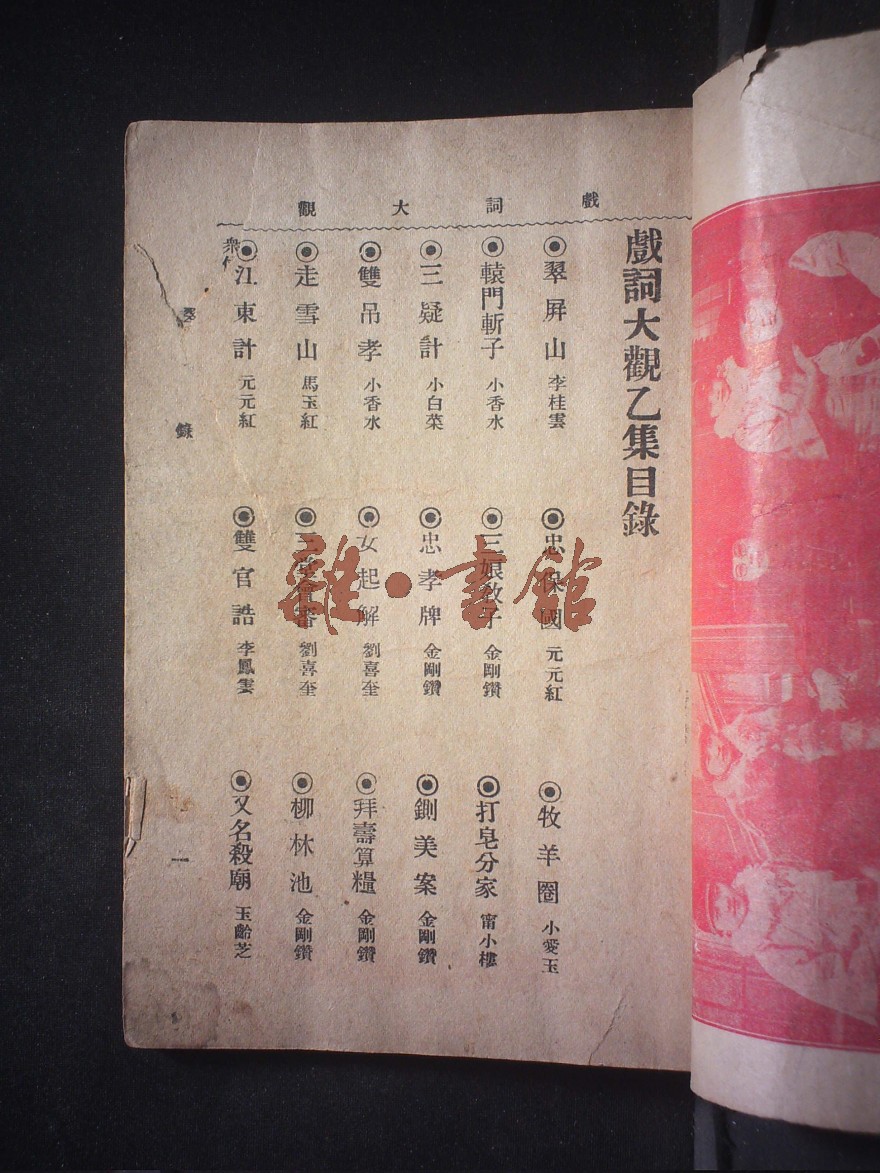 戲詞大觀
戲詞大觀乙集目錄
翠屏山 李桂雲
忠保國 元元紅
牧羊圈 小愛玉
轅門斬子 小香水
三娘教子 金剛鑽
打皂分家 甯小樓
三疑計 小白菜
忠孝牌 金剛鑽
鍘美案 金剛鑽
雙吊孝 小香水
女起解 劉喜奎
拜壽算糧 金剛鑽
走雪山 馬玉紅
三堂會審 劉喜奎
柳林池 金剛鑽
江東計 元元紅
雙官誥 李鳳雲
又名殺廟 玉齡芝
錄
一
雜·書館